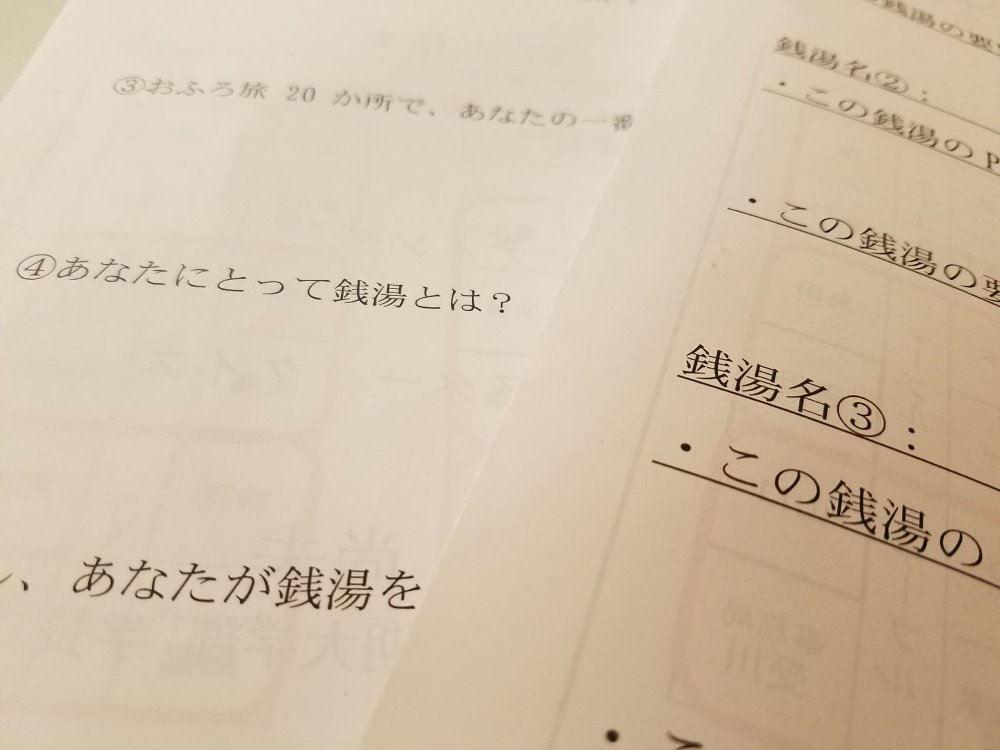 ③おふろ旅 20 か所で、あなたの一番
④あなたにとって銭湯とは？
、あなたが銭湯を
銭湯の要
銭湯名②：
・この銭湯の P
・この銭湯の要
銭湯名③：
・この銭湯の
・こ